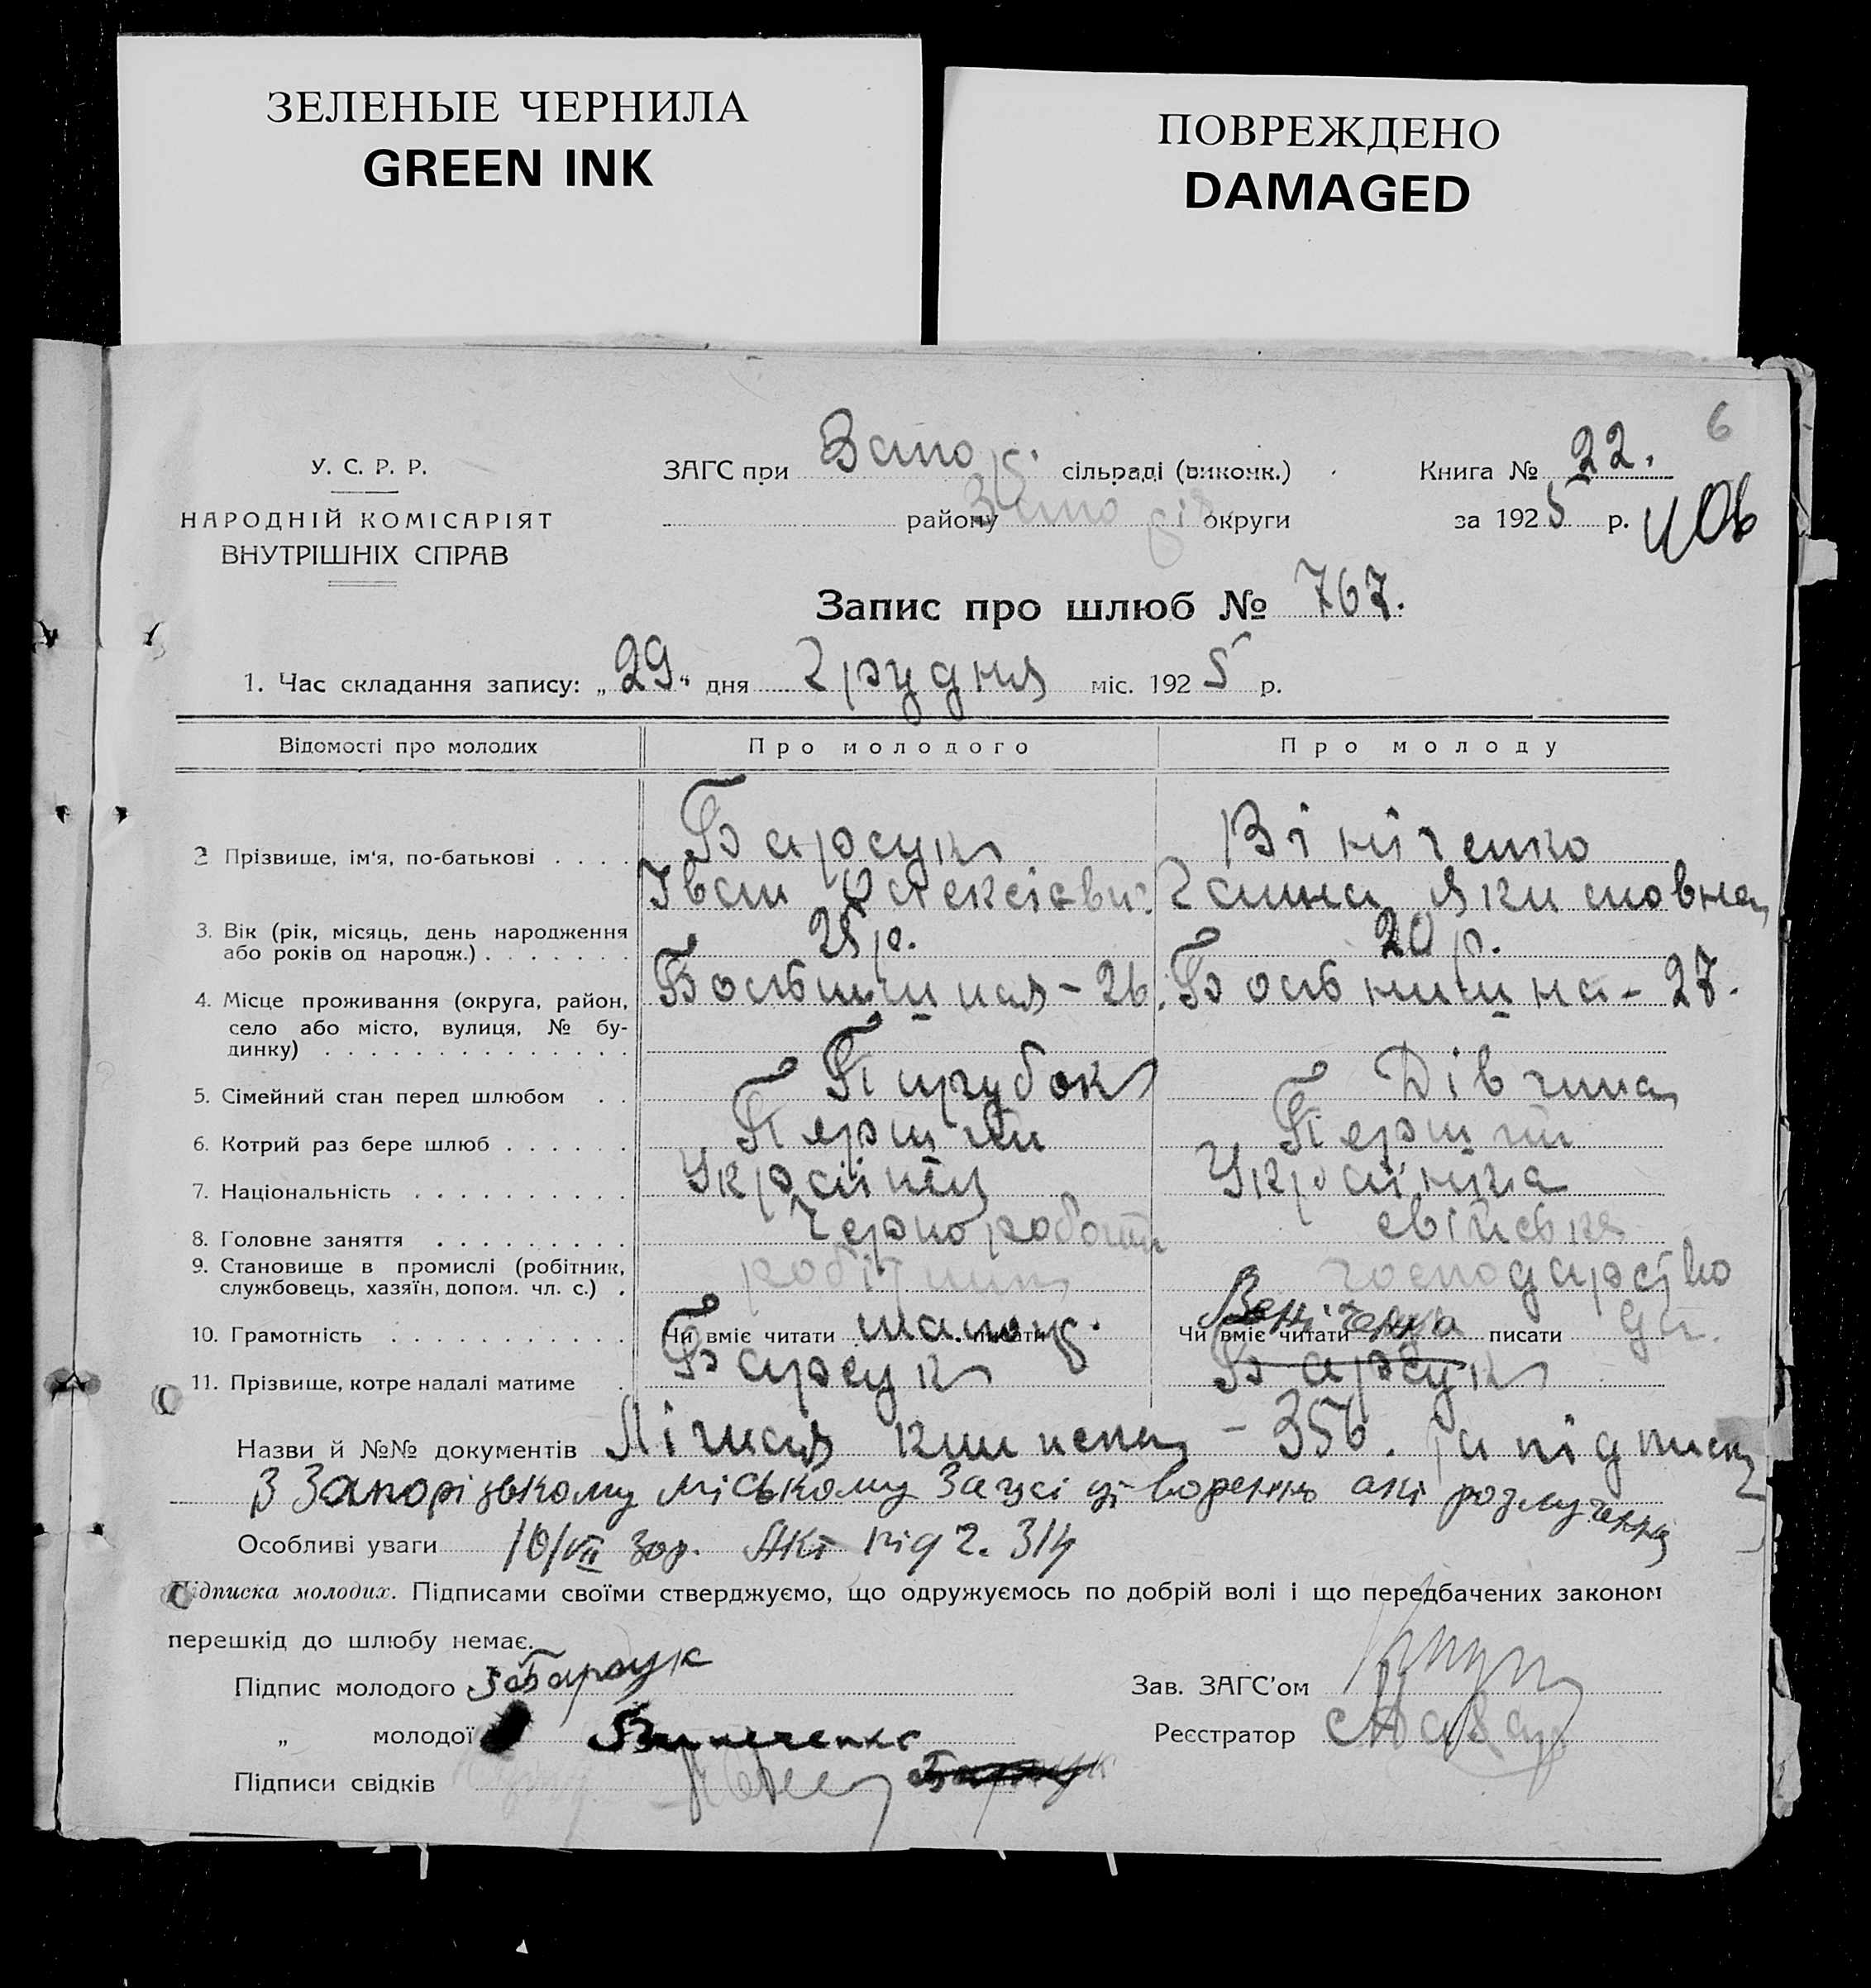 ЗЕЛЕНЫЕ ЧЕРНИЛА
GREEN INK
ПОВРЕЖДЕНО
DAMAGED
6
У. С. Р. Р.
НАРОДНІЙ КОМІСАРІЯТ
ВНУТРІШНІХ СПРАВ
ЗАГС при Запоріз. сільраді (виконк.)
району округи
Книга № 22.
за 1925 р.
Запис про шлюб № 767.
1. Час складання запису: „29“ дня Грудня міс. 1925 р.
Відомості про молодих Про молодого Про молоду
2 Прізвище, ім'я, по-батькові Барсук Вініченко
Іван Олексієвич Ганна Якимовна
3. Вік (рік, місяць, день народження або років од народж.) 25 р. 20 р.
4. Місце проживання (округа, район, село або місто, вулиця, № будинку) - 26. - 27.
5. Сімейний стан перед шлюбом Парубок Дівчина
6. Котрий раз бере шлюб Перший Перший
7. Національність Українец Українка
8. Головне заняття Чорноробочий свійське
9. Становище в промислі (робітник, службовець, хазяїн, допом. чл. с.) робітник господарство
10. Грамотність Чи вміє читати писати Чи вміє читати писати да.
Веніченко
11. Прізвище, котре надалі матиме Барсук Барсук
Назви й №№ документів Лічная книжка - 356. та підписка
В Запорізькому міському Загсі створенно акт розлучення
Особливі уваги 10/VII 30р. Акт під ч. 314
Підписка молодих. Підписами своїми стверджуємо, що одружуємось по добрій волі і що передбачених законом
перешкід до шлюбу немає.
Підпис молодого Барсук
Зав. ЗАГС'ом
„ молодої Винеченко
Реєстратор
Підписи свідків Барсук